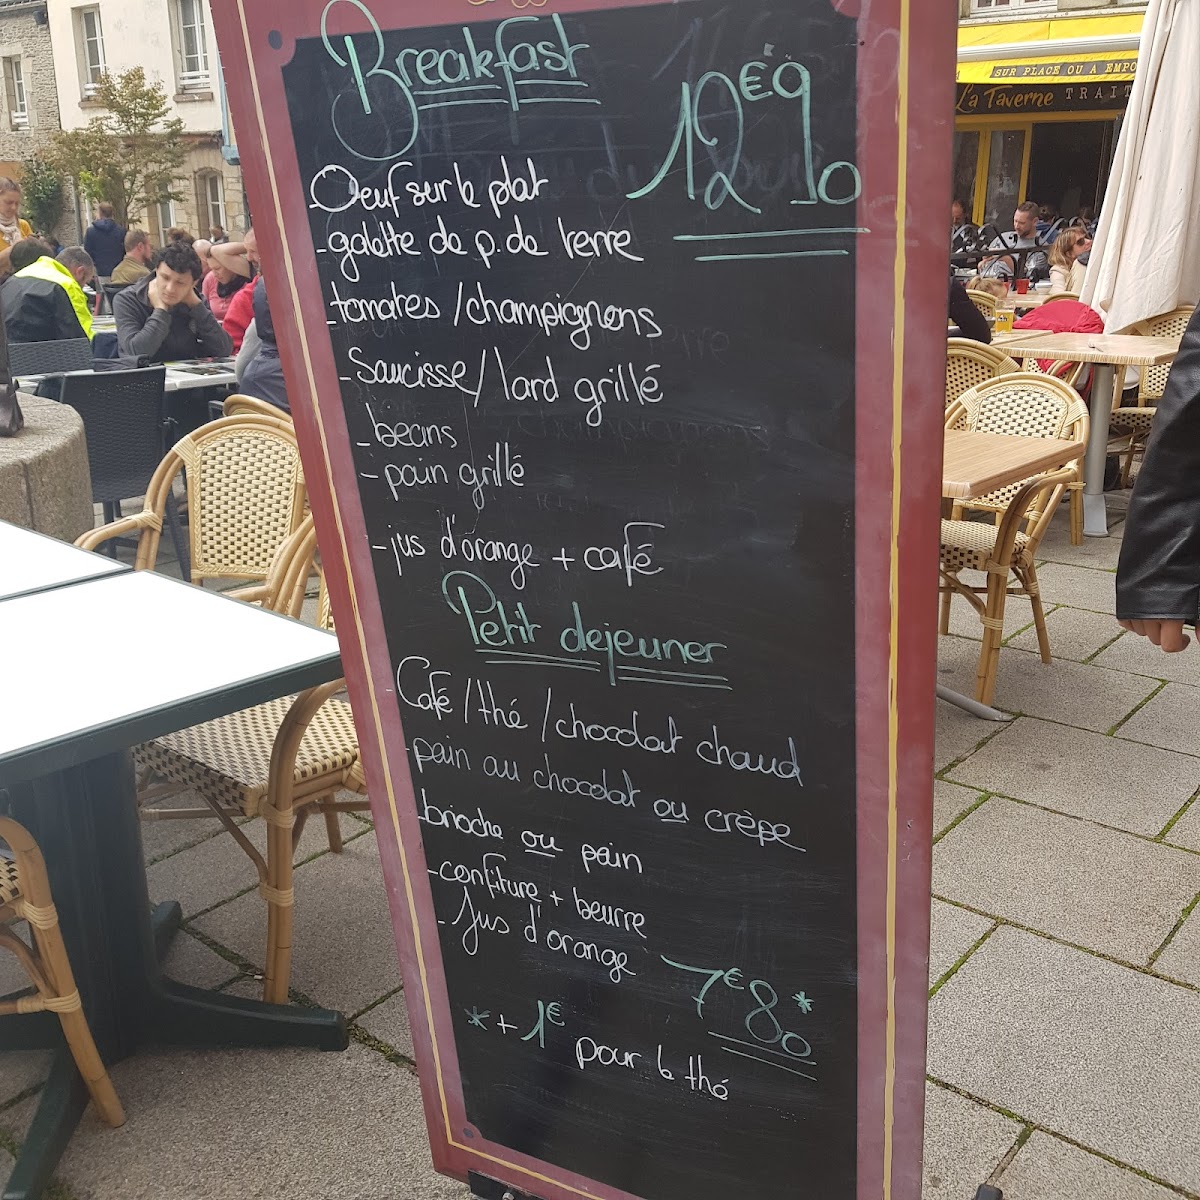 Breakfast
12€90
Oeuf sur le plat
- galette de p. de terre
- tomates / champignons
- Saucisse / lard grillé
- beans
- pain grillé
- jus d'orange + café
Petit dejeuner
- Café / thé / chocolat chaud
- pain au chocolat ou crêpe
- brioche ou pain
- confiture + beurre
- Jus d'orange
7€80*
* + 1€ pour le thé
SUR PLACE OU A EMPO
La Taverne TRAIT